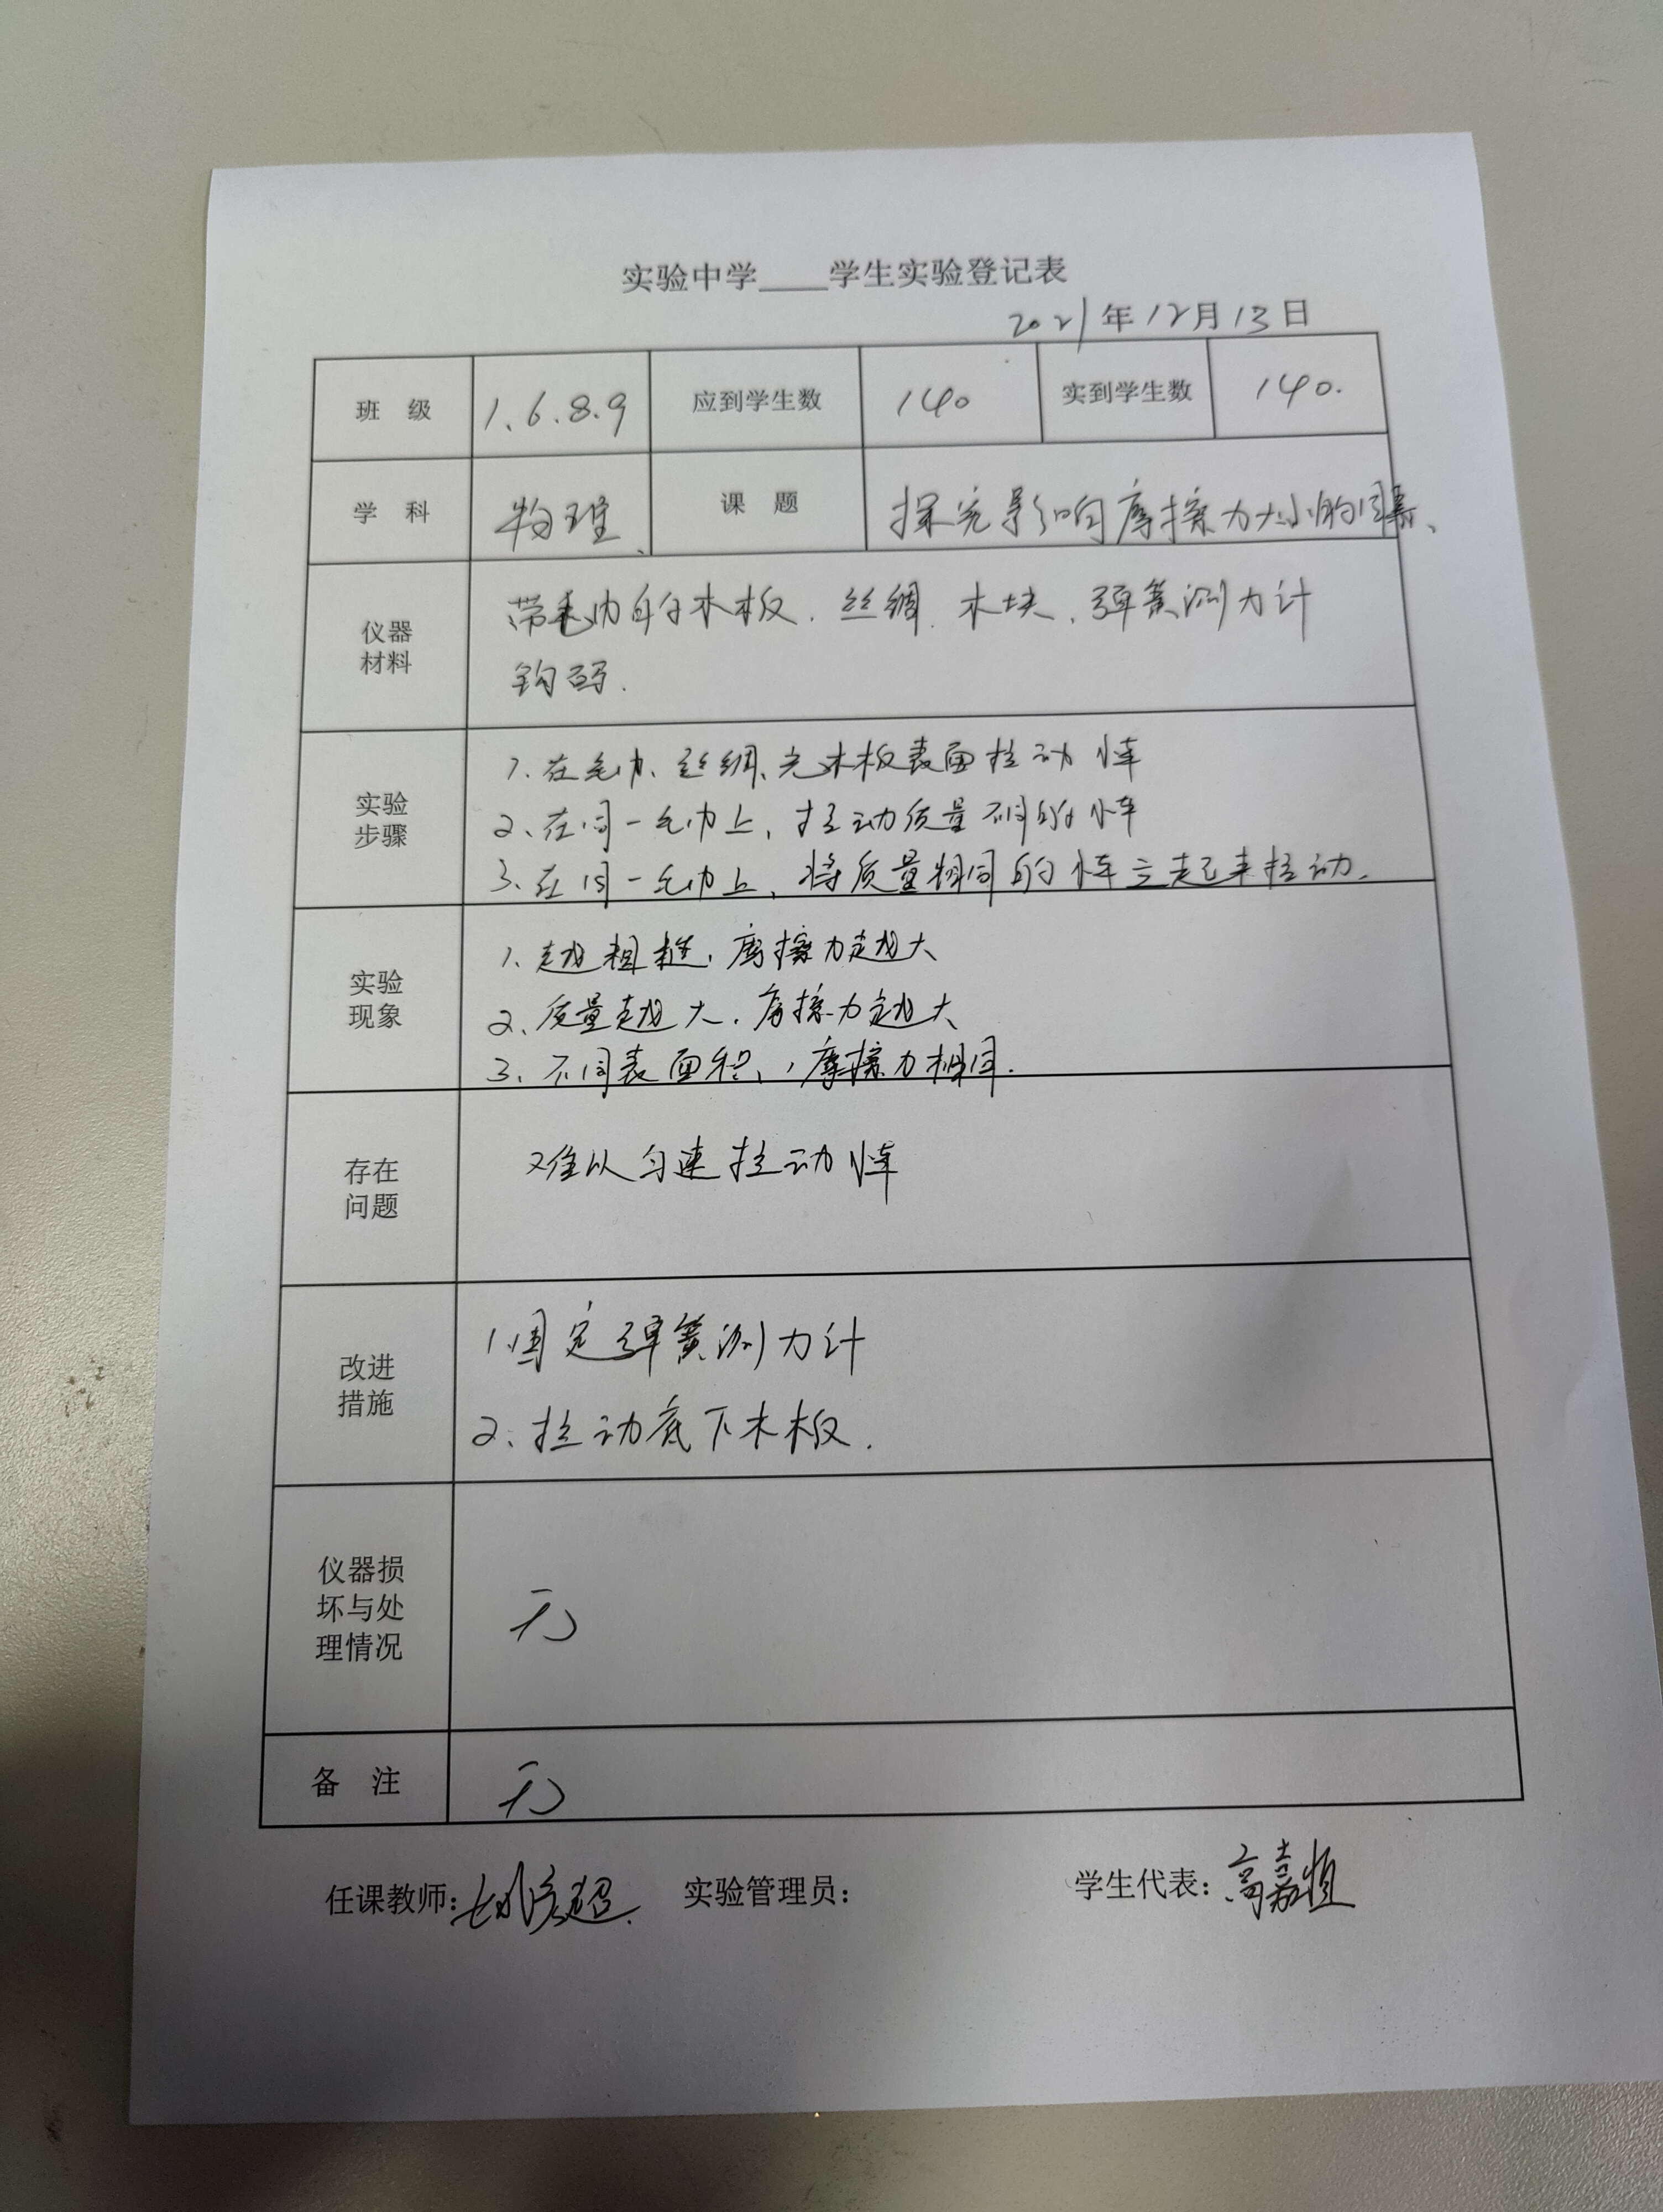 实验中学____学生实验登记表
2021年12月13日
班 级 1.6.8.9 应到学生数 140 实到学生数 140.
学 科 物理、 课 题 探究影响摩擦力大小的因素、
仪器 材料
带毛巾的木板.丝绸.木块.弹簧测力计
钩码.
实验 步骤
1.在毛巾、丝绸、光木板表面拉动小车
2、在同一毛巾上,拉动质量不同的小车
3、在同一毛巾上,将质量相同的小车立起来拉动.
实验 现象
1、越粗糙,摩擦力越大
2、质量越大,摩擦力越大
3、不同表面积,摩擦力相同.
存在 问题
难以匀速拉动小车
改进 措施
1.固定弹簧测力计
2、拉动底下木板.
仪器损 坏与处 理情况
无
备 注 无
任课教师: 实验管理员: 学生代表:高嘉恒